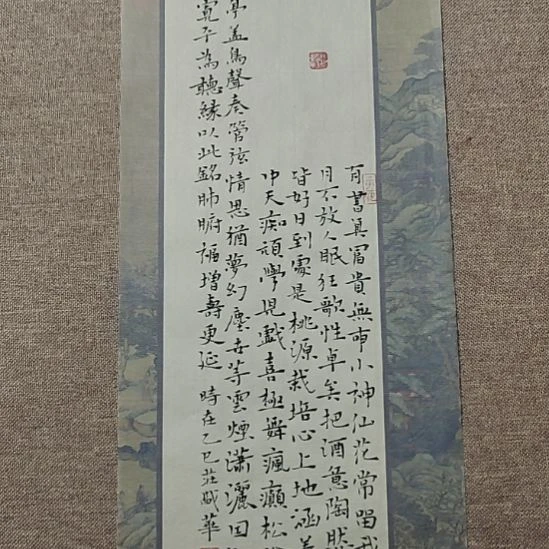 有書真富貴無事小神仙花常留我
月不放人眠狂歌性卓矣把酒意陶然
皆好日到處是桃源栽培心上地涵養
中天痴頑學兒戲喜極舞瘋癲松
亭蓋鳥聲奏管弦情思猶夢幻塵世等雲煙瀟灑回
寬予為聽緣以此銘肺腑福增壽更延 時在乙巳莊盛華